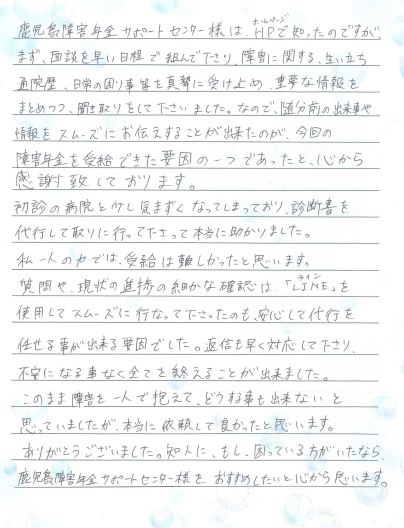 ホームページ
鹿児島障害年金サポートセンター様は、HPで知ったのですが、
まず、面談を早い日程で組んで下さり、障害に関する、生い立ち
通院歴、日常の困り事等を真摯に受け止め、重要な情報を
まとめつつ、聞き取りをして下さいました。なので、随分前の出来事や、
情報をスムーズにお伝えすることが出来たのが、今回の
障害年金を受給できた要因の一つであったと、心から
感謝致しております。
初診の病院と少し気まずくなってしまっており、診断書を
代行して取りに行って下さって本当に助かりました。
私一人の力では、受給は難しかったと思います。
ライン
質問や、現状の進捗の細かな確認は、「LINE」を
使用してスムーズに行なって下さったのも、安心して代行を
任せる事が出来る要因でした。返信も早く対応して下さり、
不安になる事なく全てを終えることが出来ました。
このまま障害を一人で抱えて、どうする事も出来ないと
思っていましたが、本当に依頼して良かったと思います。
ありがとうございました。知人に、もし、困っている方がいたなら、
鹿児島障害年金サポートセンター様をおすすめしたいと心から思います。